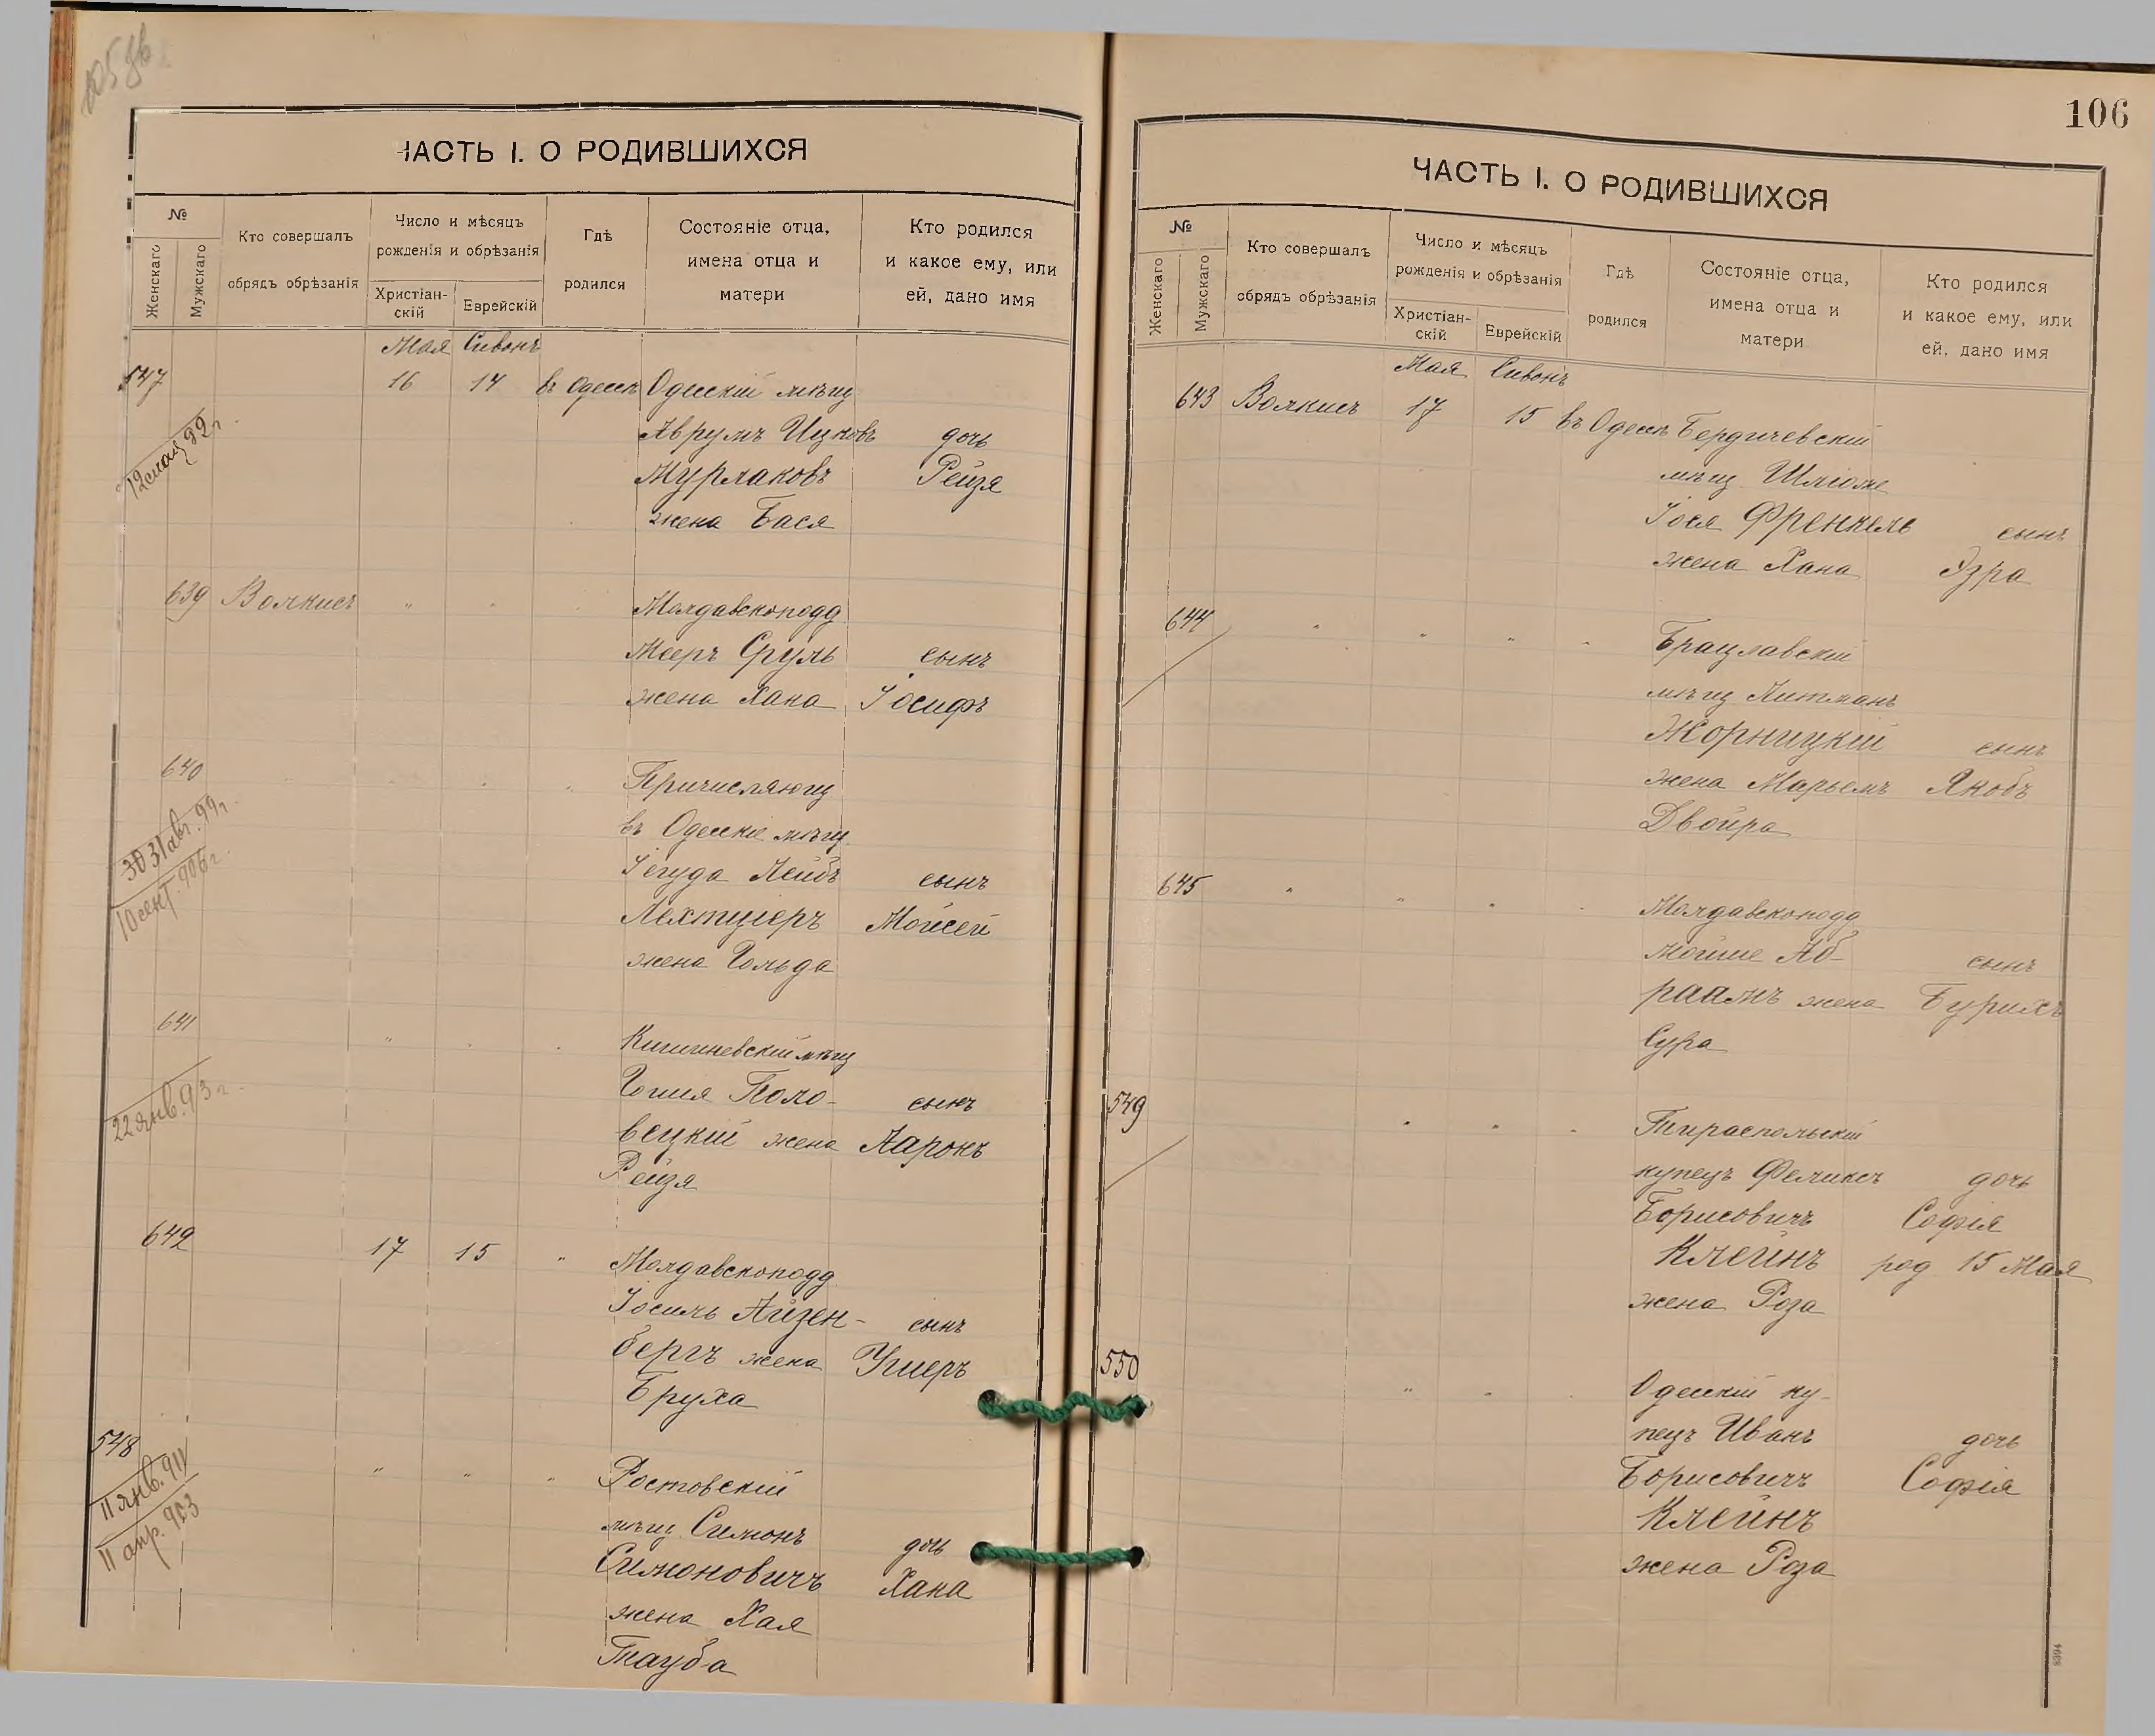 105 об
ЧАСТЬ I. О РОДИВШИХСЯ
№
Женскаго
Мужскаго
Кто совершалъ
обрядъ обрѣзанія
Число и мѣсяцъ
рожденія и обрѣзанія
Христіан-
скій
Еврейскій
Гдѣ
родился
Состояніе отца,
имена отца и
матери
Кто родился
и какое ему, или
ей, дано имя
Мая Сивонъ
547 16 14 въ Одессѣ Одесскій мѣщ
Аврумъ Ицковъ дочь
Мурлаковъ Рейзя
жена Бася
639 Волкисъ " " Молдавскоподд
Мееръ Сруль сынъ
жена Хана Іосифъ
640 " " Причисляющ
въ Одесскіе мѣщ
Іегуда Лейбъ сынъ
Лехтціеръ Мойсей
жена Гольда
30 31 авг. 99 г.
10 сент. 906 г.
641 " " " Кишиневскій мѣщ
Гошія Поло- сынъ
вецкій жена Ааронъ
Рейзя
22 янв. 913 г.
642 17 15 " Молдавскоподд
Іосиль Айзен- сынъ
бергъ жена Ушеръ
Бруха
548 " " " Ростовскій
мѣщ Симонъ дочь
Симоновичъ Хана
жена Хая
Тауба
11 янв. 911
11 апр. 903
106
ЧАСТЬ I. О РОДИВШИХСЯ
№
Женскаго
Мужскаго
Кто совершалъ
обрядъ обрѣзанія
Число и мѣсяцъ
рожденія и обрѣзанія
Христіан-
скій
Еврейскій
Гдѣ
родился
Состояніе отца,
имена отца и
матери
Кто родился
и какое ему, или
ей, дано имя
Мая Сивонъ
643 Волкисъ 17 15 въ Одессѣ Бердичевскій
мѣщ Шліоме
Іося Френкель сынъ
жена Хана Эзра
644 " " " " Брацлавскій
мѣщ Литманъ
Жорницкій сынъ
жена Марьемъ Якобъ
Двойра
645 " " " Молдавскоподд
Мойше Аб- сынъ
раамъ жена Бурихъ
Сура
549 " " " Тираспольскій
купецъ Феликсъ дочь
Борисовичъ Софія
Клейнъ род 15 Мая
жена Роза
550 " " Одесскій ку-
пецъ Иванъ дочь
Борисовичъ Софія
Клейнъ
жена Роза